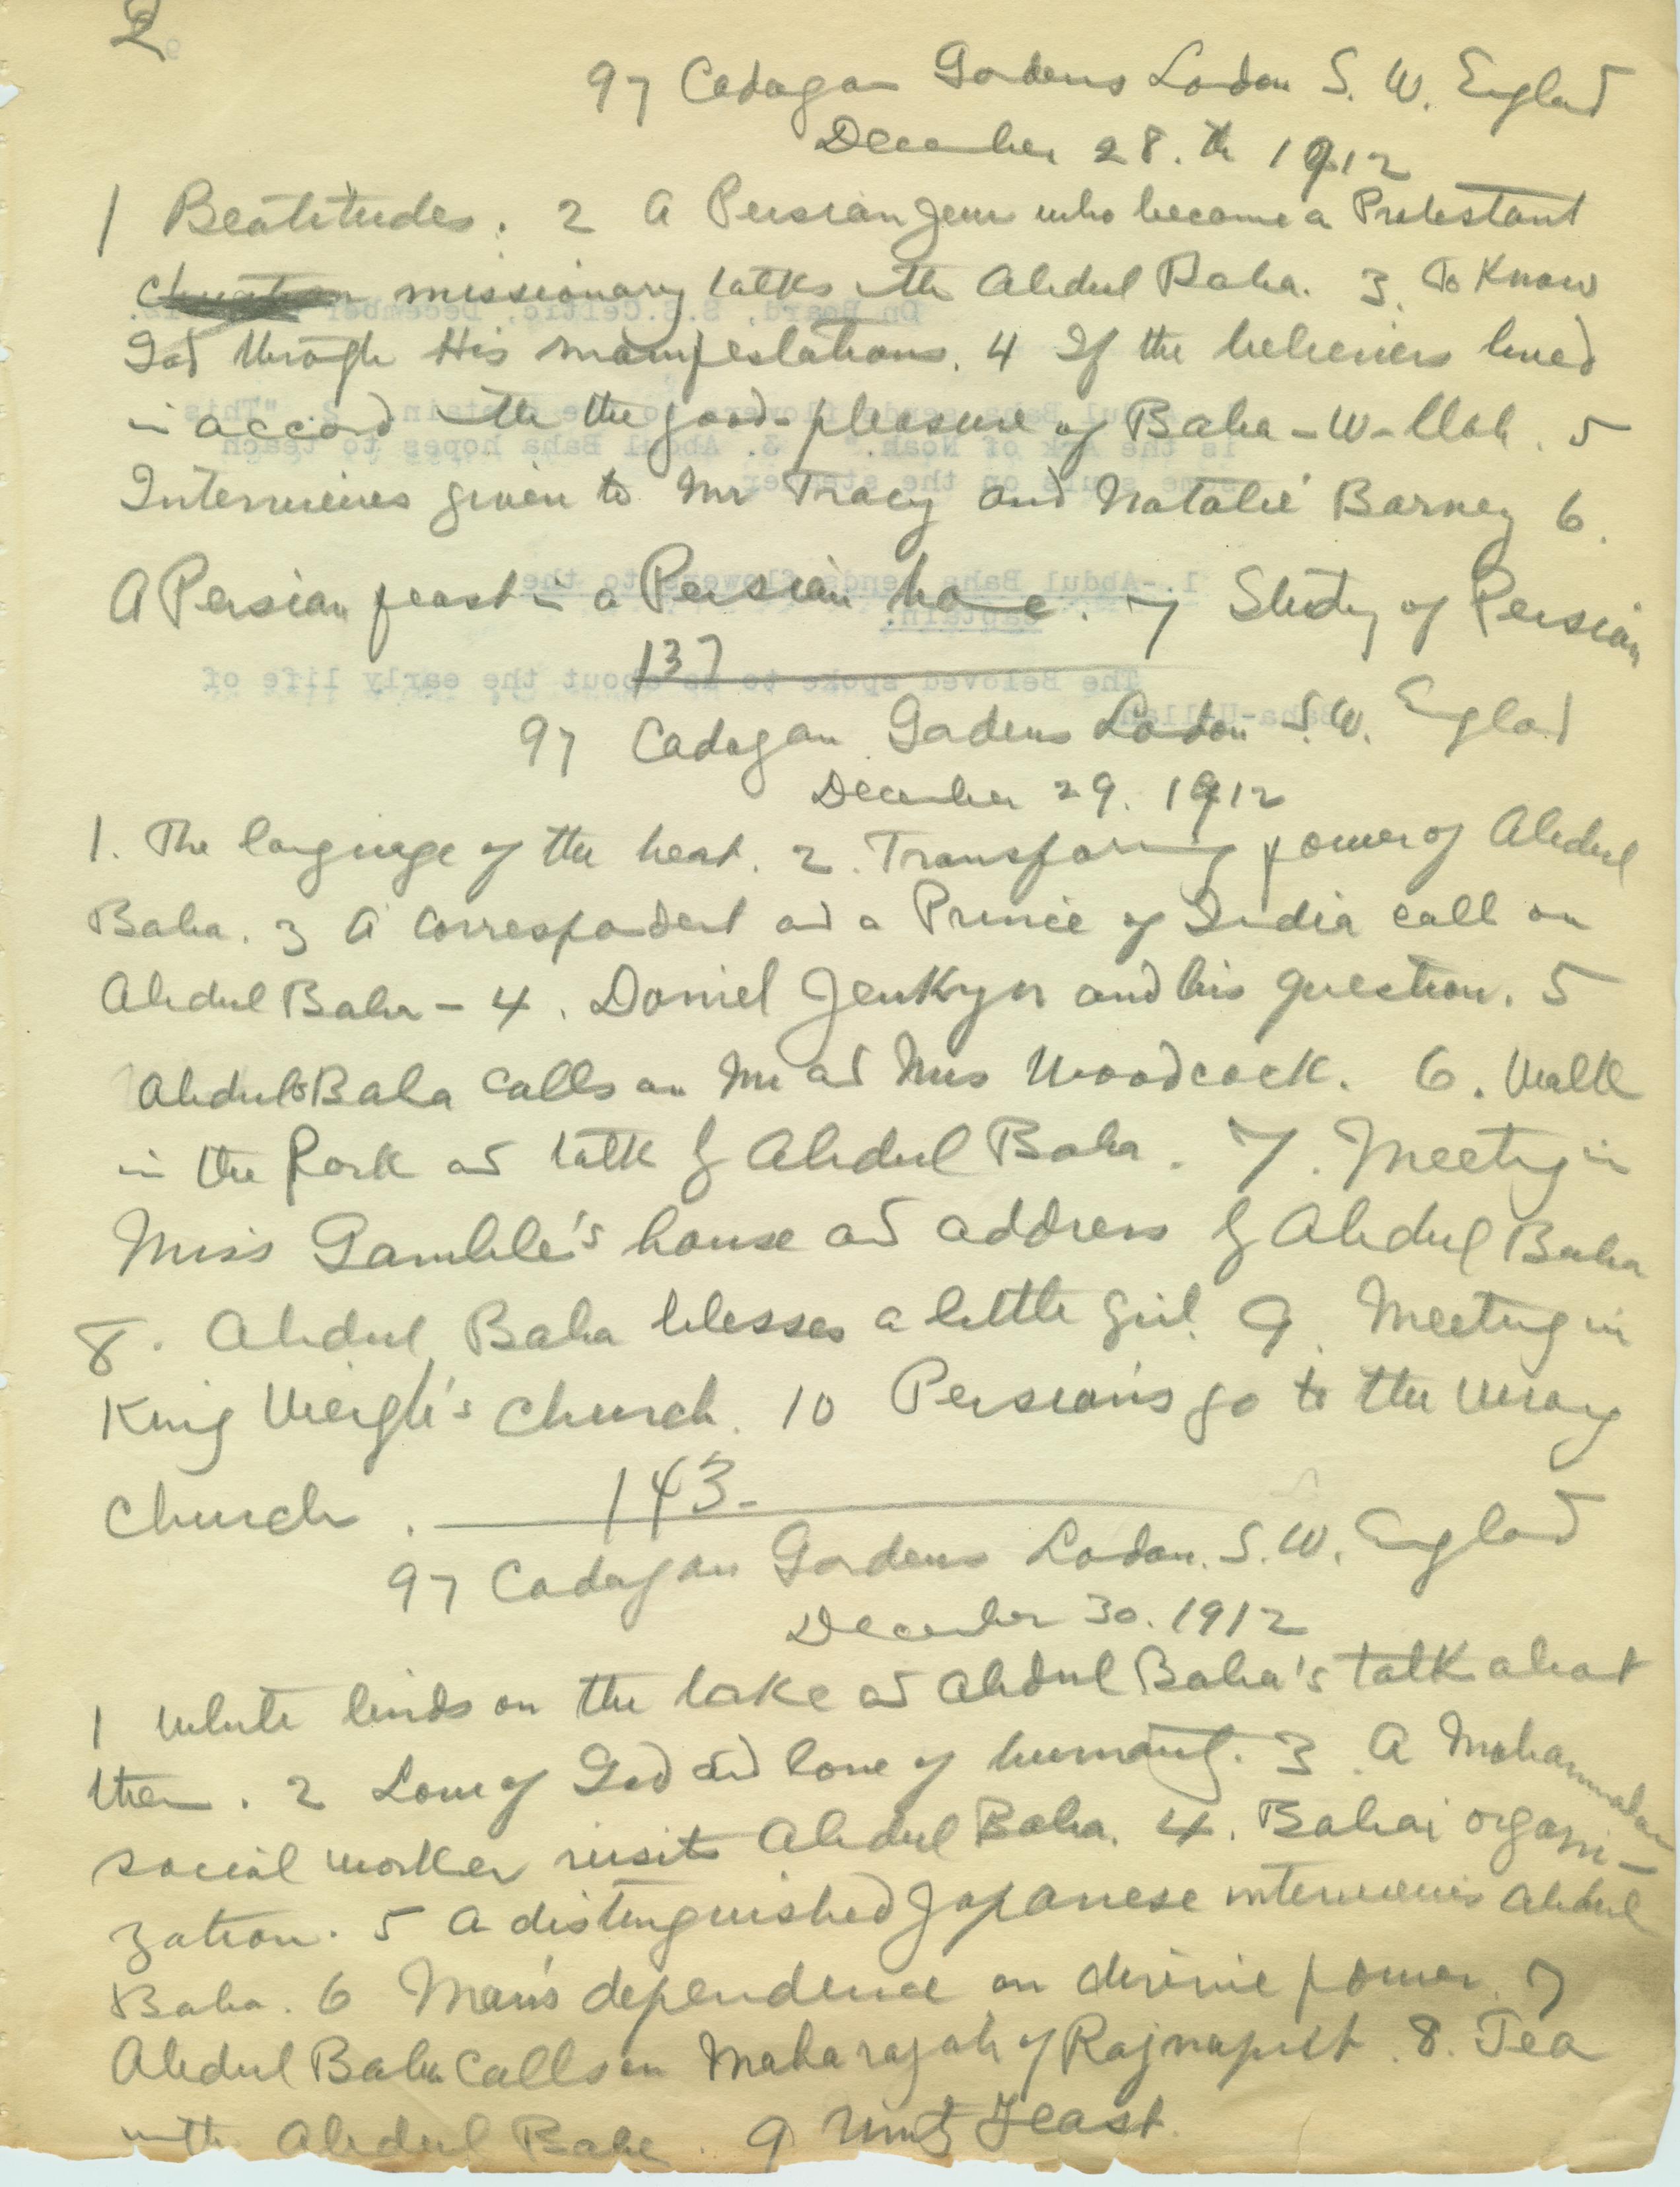 2
97 Cadogan Gardens London S. W. England
December 28. th 1912
1 Beatitudes. 2 A Persian Jew who became a Protestant
missionary talks with Abdul Baha. 3. To Know
God through His manifestations. 4 If the believers lived
in accord with the good-pleasure of Baha-W-llah. 5
Interviews given to Mr Tracy and Natalie Barney 6.
A Persian feast in a Persian home. 7 Study of Persian
137
97 Cadogan Gardens London S.W. England
December 29. 1912
1. The language of the heart. 2. Transforming power of Abdul
Baha. 3 A correspondent and a Prince of India call on
Abdul Baha - 4. Daniel Jenkyn and his question. 5
Abdul Baha calls on Mr and Mrs Woodcock. 6. Walk
in the Park and talk by Abdul Baha. 7. Meeting in
Miss Gamble's house and address by Abdul Baha
8. Abdul Baha blesses a little girl. 9. Meeting in
King Weigh's church. 10 Persians go to the wrong
church.
143-
97 Cadogan Gardens London. S.W. England
December 30. 1912
1 White birds on the lake and Abdul Baha's talk about
them. 2 Love of God and love of humanity. 3. A Mohammadan
social worker visits Abdul Baha. 4. Bahai organi-
zation. 5 A distinguished Japanese interviews Abdul
Baha. 6 Man's dependence on divine power. 7
Abdul Baha calls on Maharajah of . 8. Tea
with Abdul Baha. 9 Unity Feast.
On Board, S.S.Celtic, December
is the Ark of Noah." 3. Abdul Baha hopes to teach
some souls on the steamer.
1.-Abdul Baha sends flowers to the
Captain.
The Beloved spoke to us about the early life of
Baha-Ullah